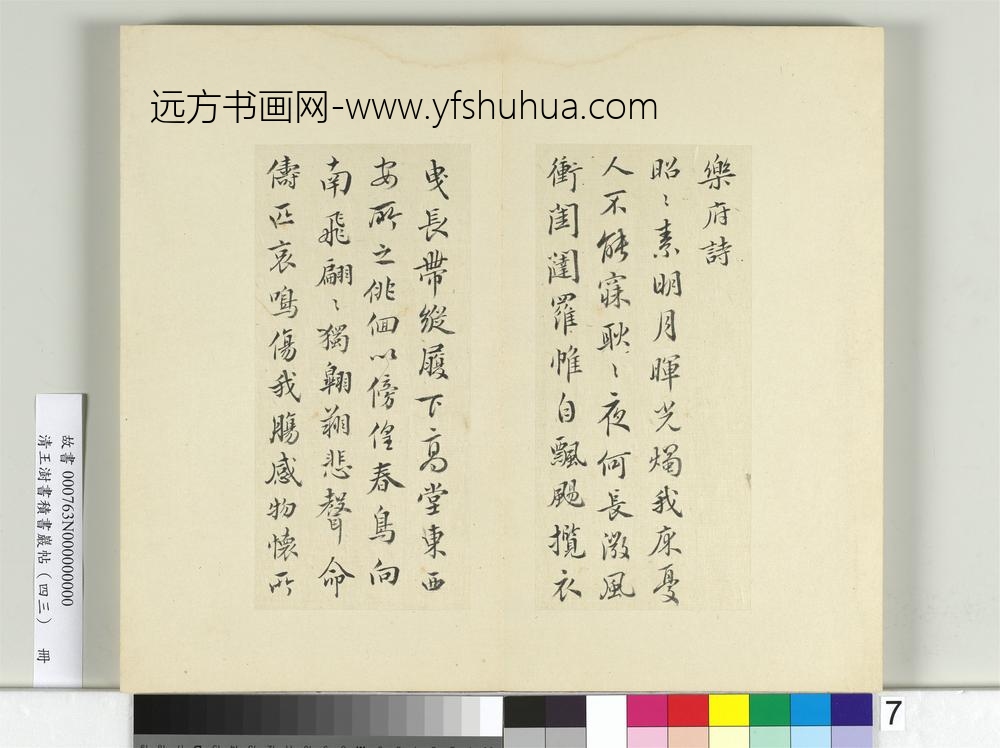 远方书画网-www.yfshuhua.com
樂府詩
昭〻素明月暉光燭我床憂
人不能寐耿〻夜何長微風
衝閨闥羅帷自飄颺攬衣
曳長帶縱履下高堂東西
安所之徘徊以傍徨春鳥向
南飛翩〻獨翱翔悲聲命
儔匹哀鳴傷我腸感物懷所
故書 000763N000000000
清王澍書積書巖帖（四三） 冊
7